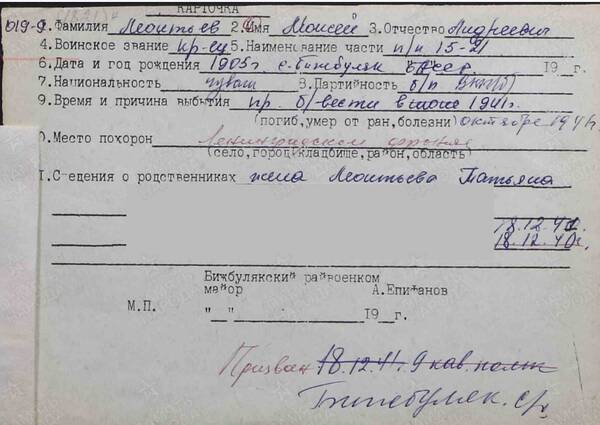 КАРТОЧКА
019-9
1.Фамилия Леонтьев 2.Имя Моисей 3.Отчество Андреевич
4.Воинское звание кр-ец 5.Наименование части п/п 15-21
6.Дата и год рождения 1905г. с.Бижбуляк БАССР 19 г.
7.Национальность чуваш 8.Партийность б/п ВКП(б)
9.Время и причина выбытия пр. б/вести в июле 1941г.
(погиб,умер от ран,болезни) октябре 1941г
0.Место похорон Ленинградском фронте
(село,город,кладбище,район,область)
1.Сведения о родственниках жена Леонтьева Татьяна
18.12.41
18.12.40г.
Бижбулякский райвоенком
майор А.Епифанов
М.П. " " 19 г.
Призван 18.12.41. 9 кав. полк
Бижбуляк.